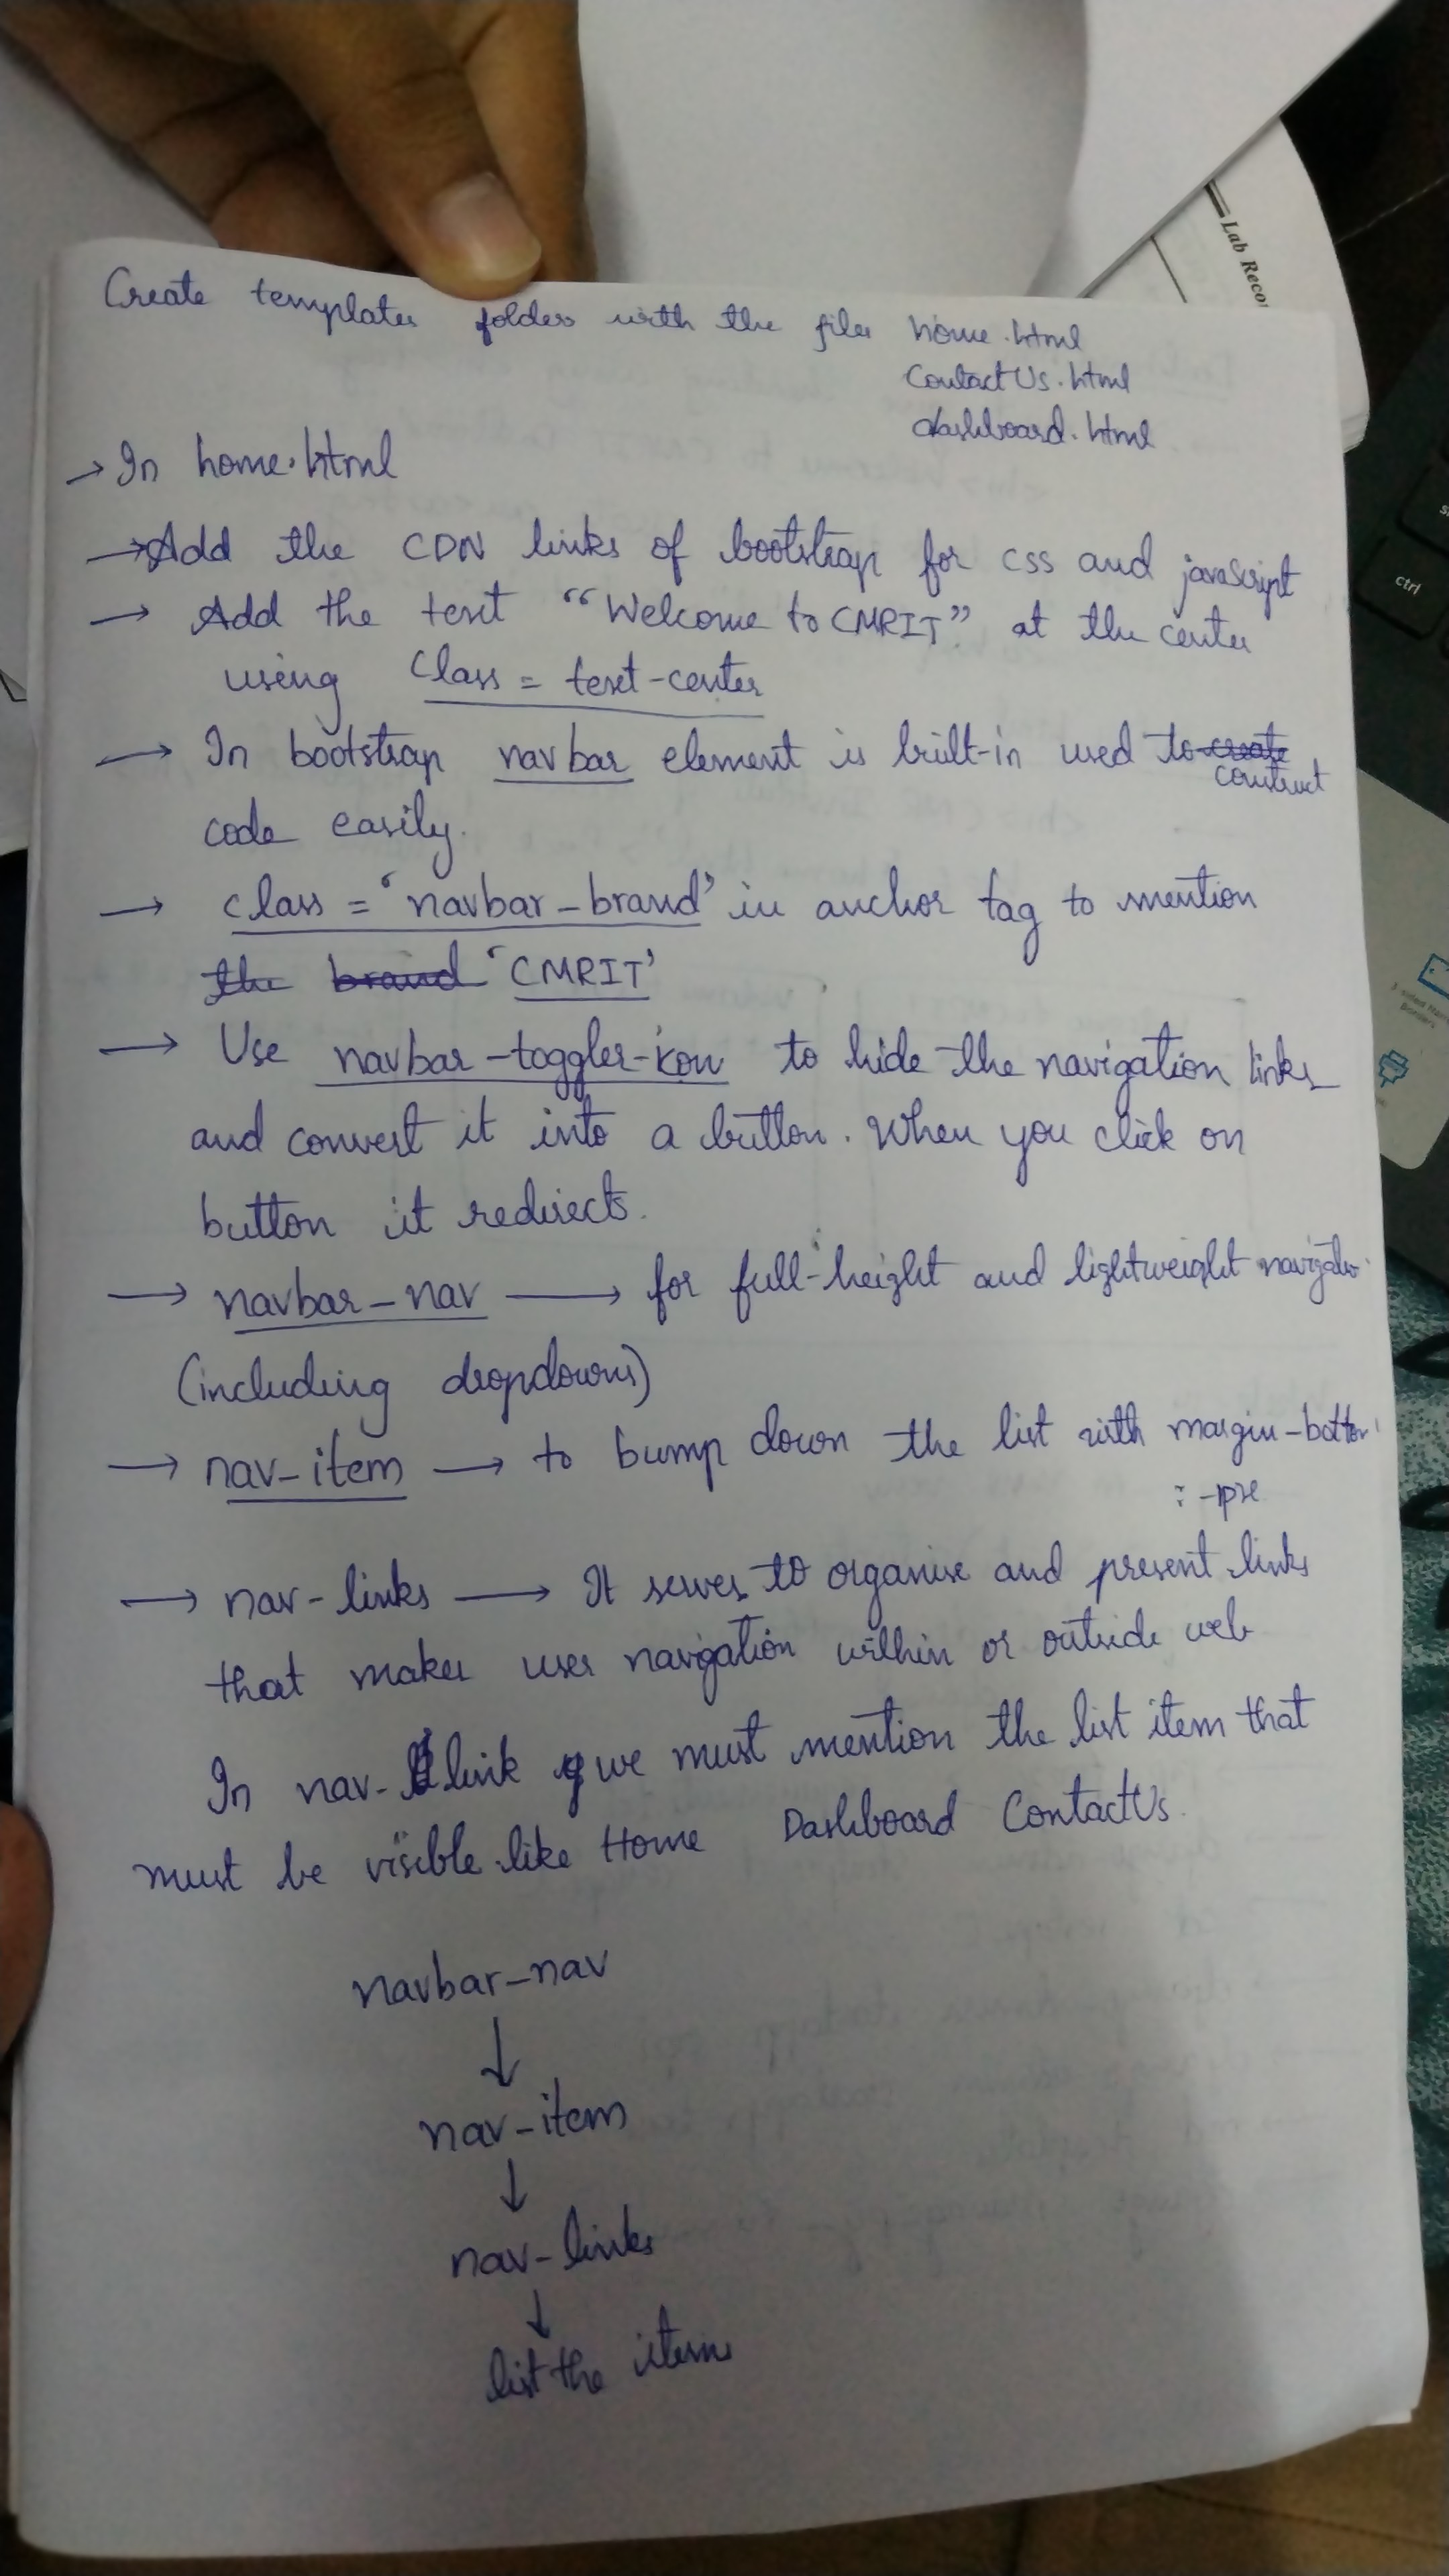 Lab Recor
Create templates folder with the files home.html
ContactUs.html
dashboard.html
→ In home.html
→ Add the CDN links of bootstrap for css and javascript
→ Add the text "Welcome to CMRIT" at the center
using class = text-center
→ In bootstrap navbar element is built-in used to create
construct
code easily.
→ class = 'navbar-brand' in anchor tag to mention
the brand 'CMRIT'
→ Use navbar-toggler-icon to hide the navigation links
and convert it into a button. When you click on
button it redirects.
→ navbar-nav → for full-height and lightweight navigatio
(including dropdowns)
→ nav-item → to bump down the list with margin-bottom
: -1px
→ nav-links → It serves to organise and present links
that makes user navigation within or outside web
In nav-link we must mention the list item that
must be visible like Home Dashboard ContactUs
navbar-nav
↓
nav-item
↓
nav-links
↓
list the items
ctrl